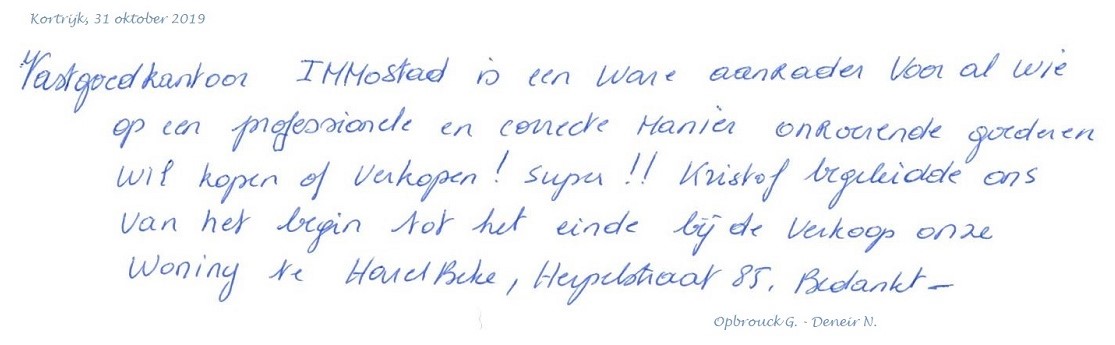 Kortrijk, 31 oktober 2019
Vastgoedkantoor IMMostad is een ware aanrader voor al wie
op een professionele en correcte manier onroerende goederen
wil kopen of verkopen! Super!! Kristof begeleidde ons
van het begin tot het einde bij de verkoop onze
woning te Harelbeke, Herpelstraat 85. Bedankt –
Opbrouck G. - Deneir N.